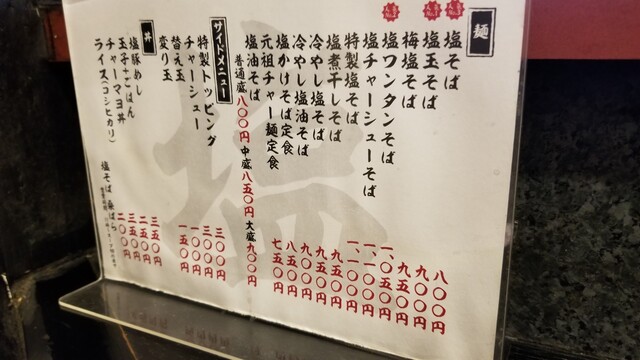 麺
塩そば 八〇〇円
塩玉そば 九〇〇円
梅塩そば 九五〇円
塩ワンタンそば 一、〇五〇円
塩チャーシューそば 一、一〇〇円
特製塩そば
塩煮干しそば 九五〇円
冷やし塩そば 九〇〇円
冷やし塩油そば 九五〇円
塩かけそば定食 八五〇円
元祖チャー麺定食 七五〇円
塩油そば
普通盛 八〇〇円 中盛 八五〇円 大盛 九〇〇円
サイドメニュー
特製トッピング 三〇〇円
チャーシュー 三〇〇円
替え玉 一〇〇円
変り玉 一五〇円
丼
塩豚めし 三五〇円
玉子ごはん 二五〇円
チャーマヨ丼 三五〇円
ライス(コシヒカリ) 二〇〇円
塩そば 桑ばら
塩